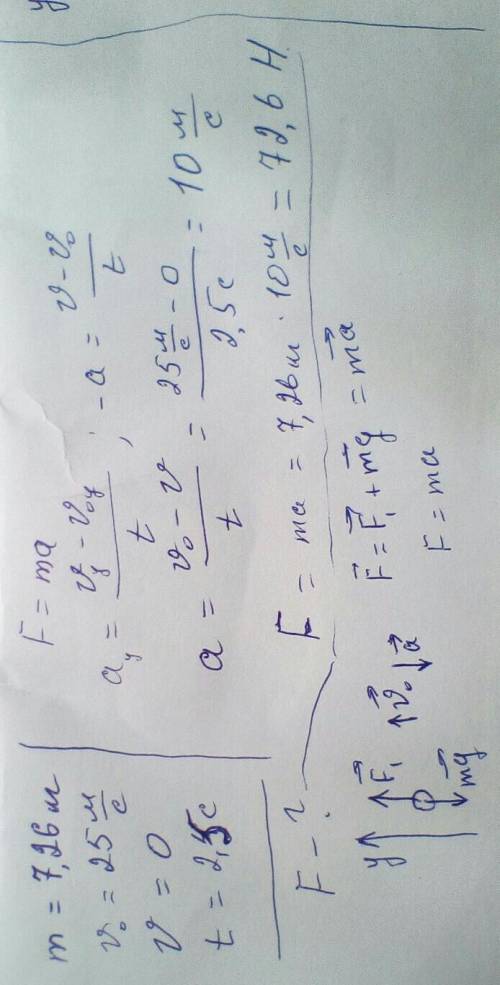 m = 7,26 кг
v₀ = 25 м/с
v = 0
t = 2,5 с
F - ?
F = ma
a_y = (v_y - v_0y)/t ; -a = (v - v₀)/t
a = (v₀ - v)/t = (25 м/с - 0)/2,5 с = 10 м/с
F = ma = 7,26 кг · 10 м/с = 72,6 Н.
y F⃗₁ v⃗₀ a⃗
mg⃗
F⃗ = F⃗₁ + mg⃗ = ma⃗
F = ma
y